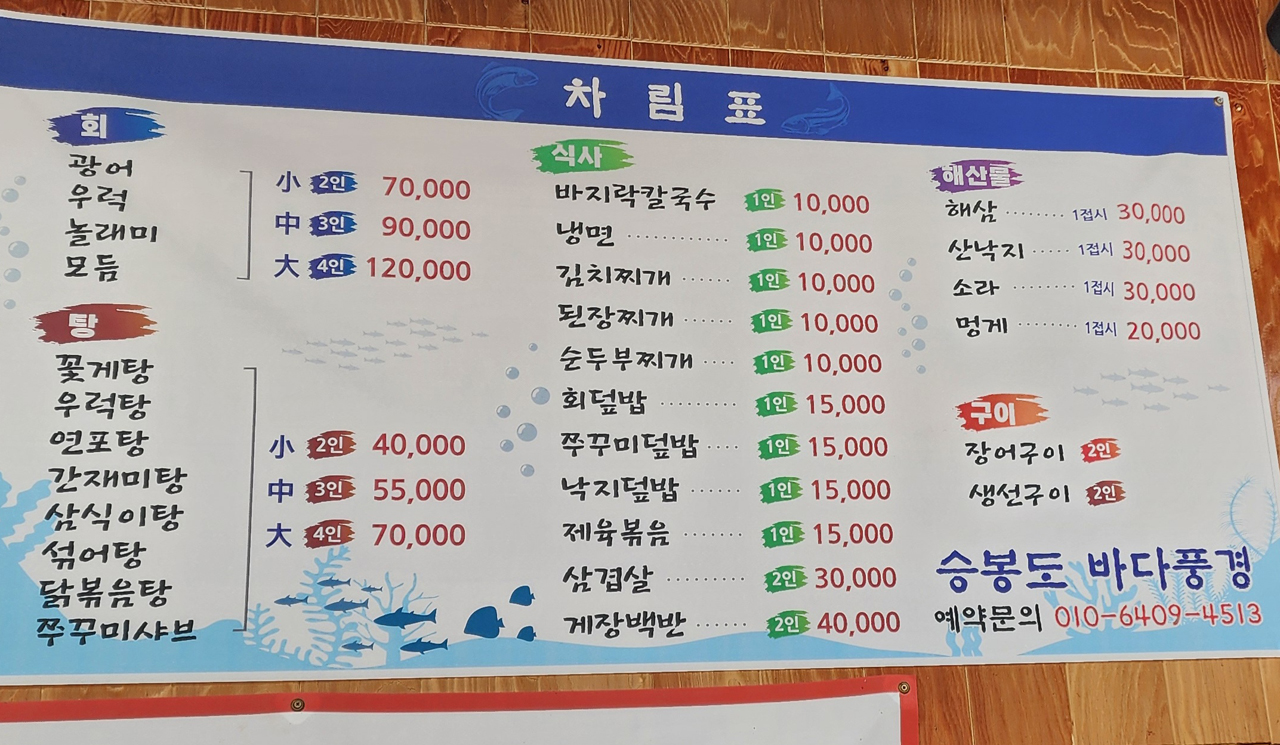 차림표
회
광어
우럭
놀래미
모듬
小 2인 70,000
中 3인 90,000
大 4인 120,000
탕
꽃게탕
우럭탕
연포탕
간재미탕
삼식이탕
섞어탕
닭볶음탕
쭈꾸미샤브
小 2인 40,000
中 3인 55,000
大 4인 70,000
식사
바지락칼국수 1인 10,000
냉면 ············ 1인 10,000
김치찌개 ······ 1인 10,000
된장찌개 ······ 1인 10,000
순두부찌개 ···· 1인 10,000
회덮밥 ········· 1인 15,000
쭈꾸미덮밥 ···· 1인 15,000
낙지덮밥 ······ 1인 15,000
제육볶음 ······· 1인 15,000
삼겹살 ········· 2인 30,000
게장백반 ······ 2인 40,000
해산물
해삼 ········ 1접시 30,000
산낙지 ····· 1접시 30,000
소라 ········ 1접시 30,000
멍게 ········ 1접시 20,000
구이
장어구이 2인
생선구이 2인
승봉도 바다풍경
예약문의 010-6409-4513